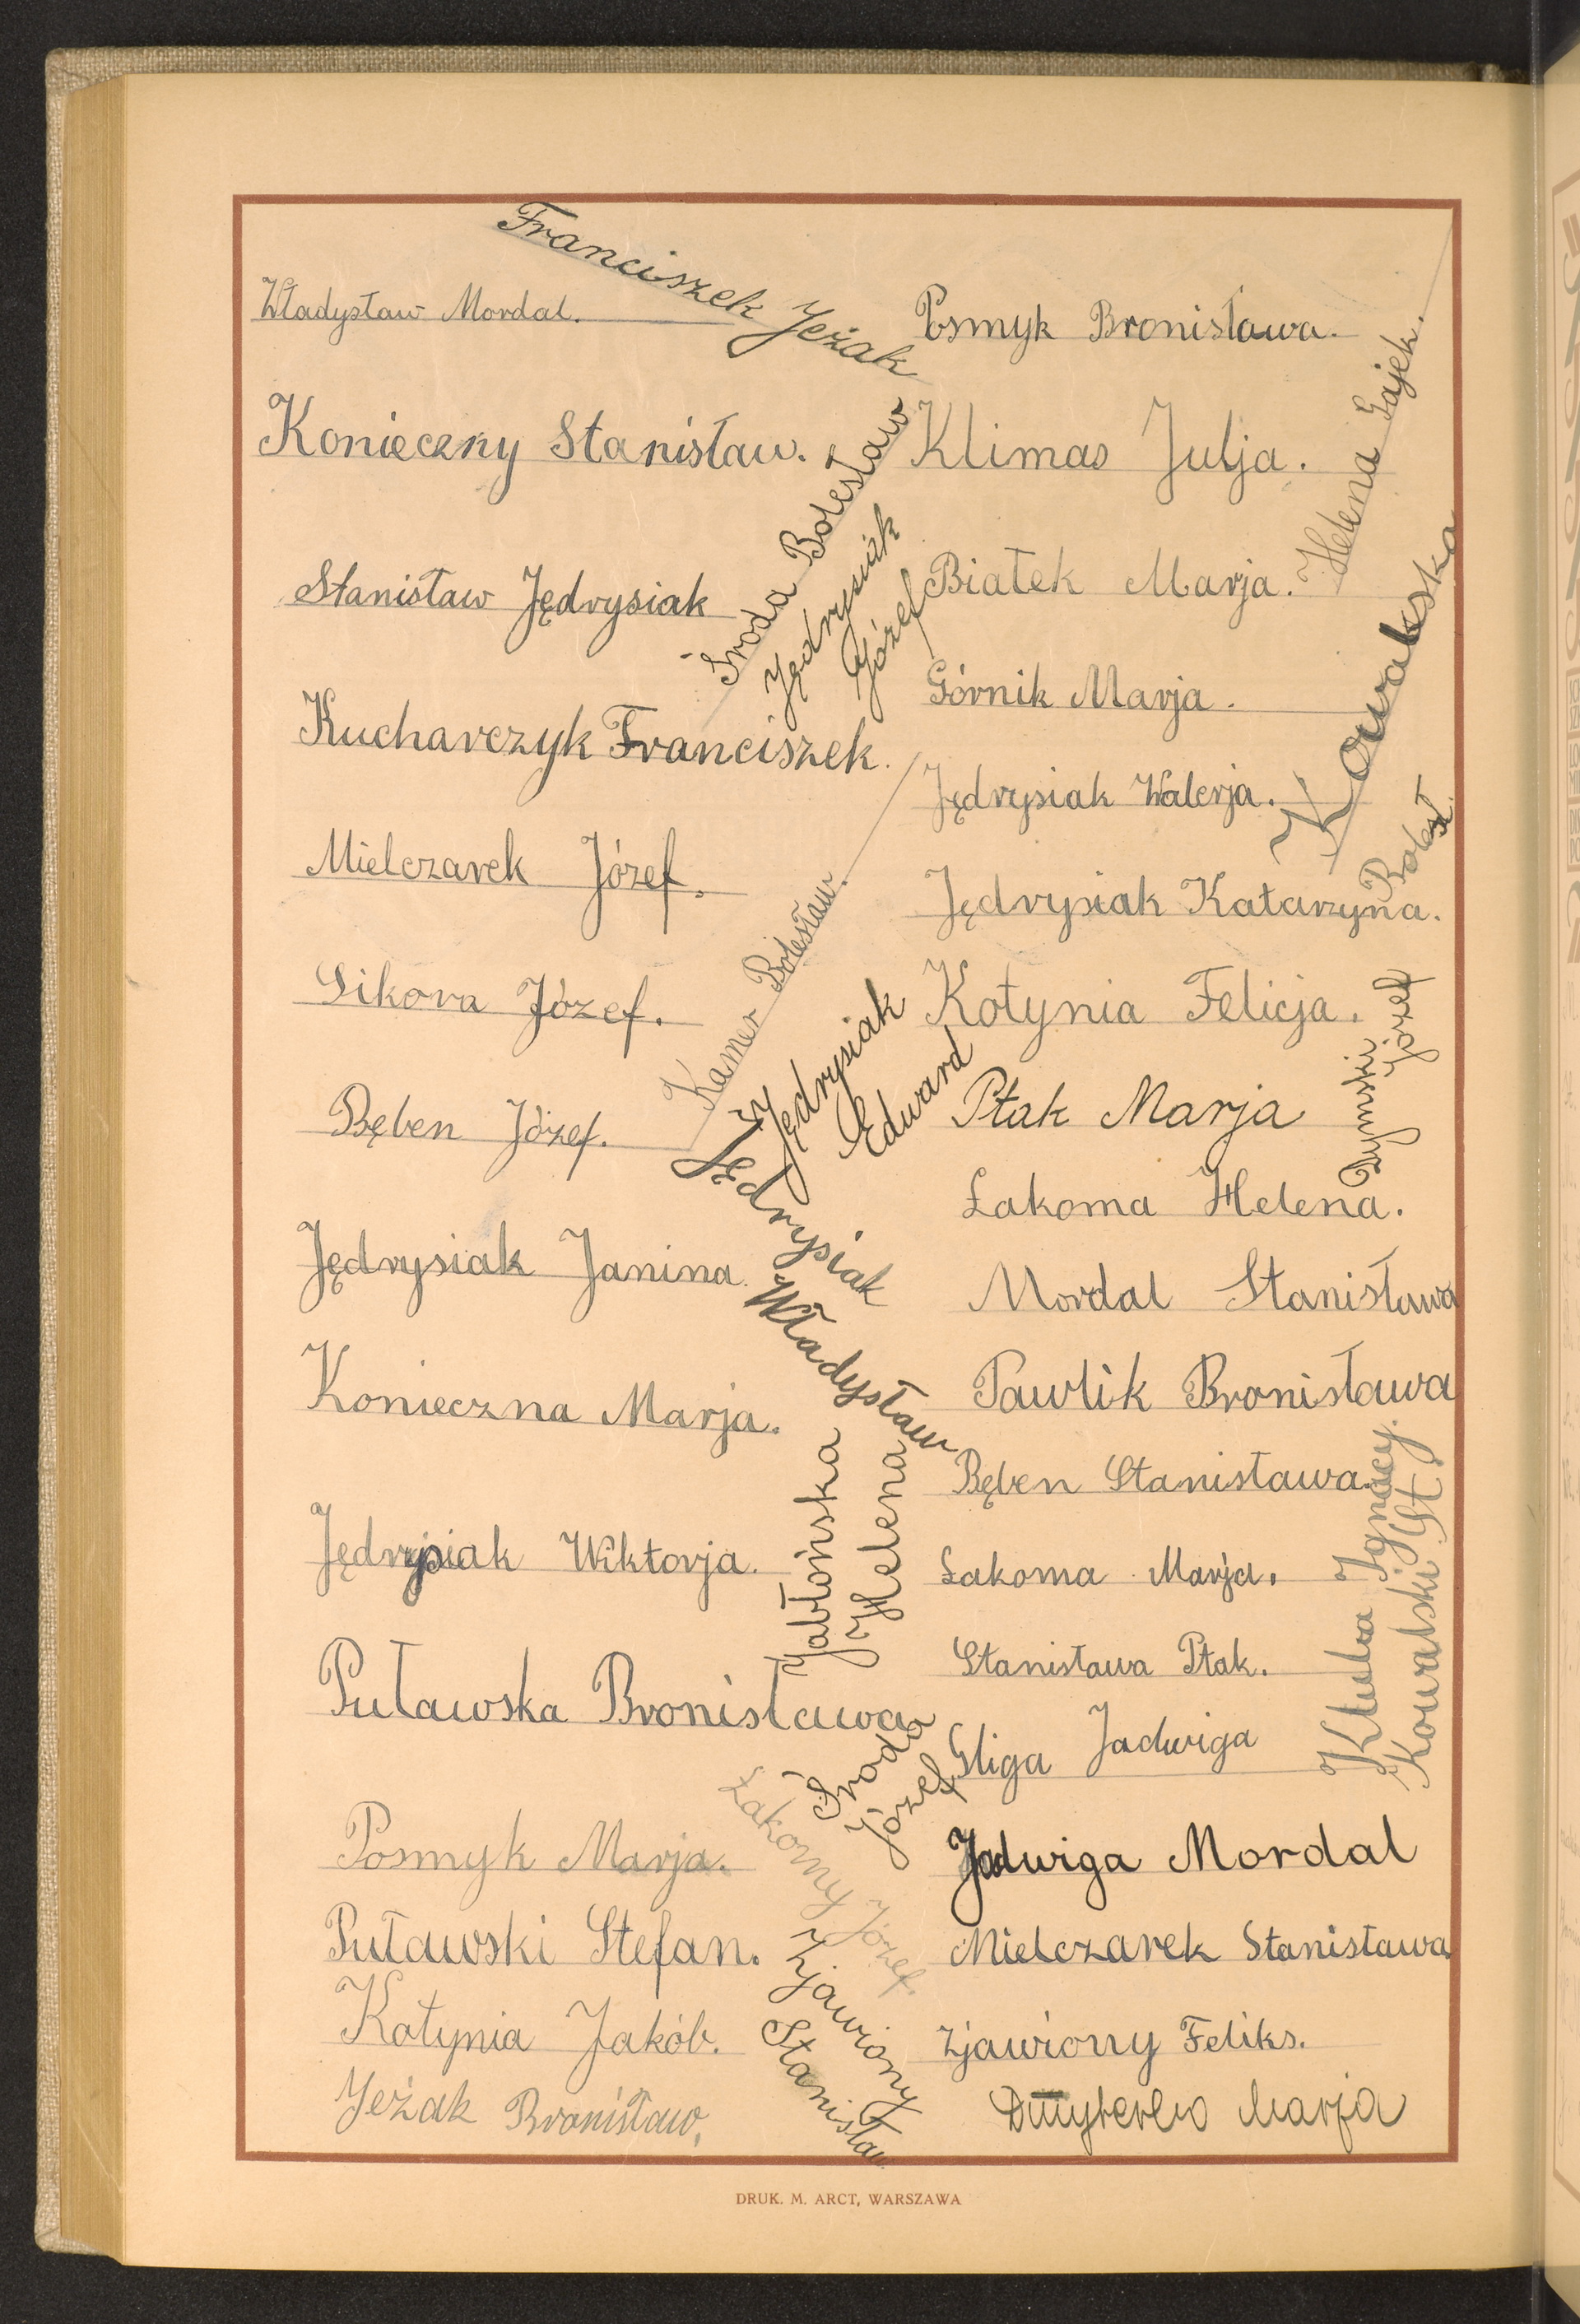 Franciszek Jeżak
Władysław Mordal.
Konieczny Stanisław.
Stanisław Jędrysiak
Kucharczyk Franciszek.
Mielczarek Józef.
Sikora Józef.
Bęben Józef.
Jędrysiak Janina.
Konieczna Marja.
Jędrysiak Wiktorja.
Puławska Bronisława
Posmyk Marja.
Puławski Stefan.
Kotynia Jakób.
Jeżak Bronisław.
Środa Bolesław
Jędrysiak
Józef
Kamer Bolesław.
Jędrysiak
Edward
Jędrysiak
Władysław
Jabłońska
Helena
Środa
Józef
Łakomy Józef.
Zjawiony
Stanisław
Posmyk Bronisława.
Klimas Julja.
Białek Marja.
Górnik Marja.
Jędrysiak Walerja.
Jędrysiak Katarzyna.
Kotynia Felicja.
Ptak Marja
Łakoma Helena.
Mordal Stanisława
Pawlik Bronisława
Bęben Stanisława.
Łakoma Marja.
Stanisława Ptak.
Gliga Jadwiga
Jadwiga Mordal
Mielczarek Stanisława
Zjawiony Feliks.
Marja
Helena Gajek.
Kowalska
Bolesł.
Rymski
Józef
Kluba Ignacy.
Kowalski St.
DRUK. M. ARCT, WARSZAWA